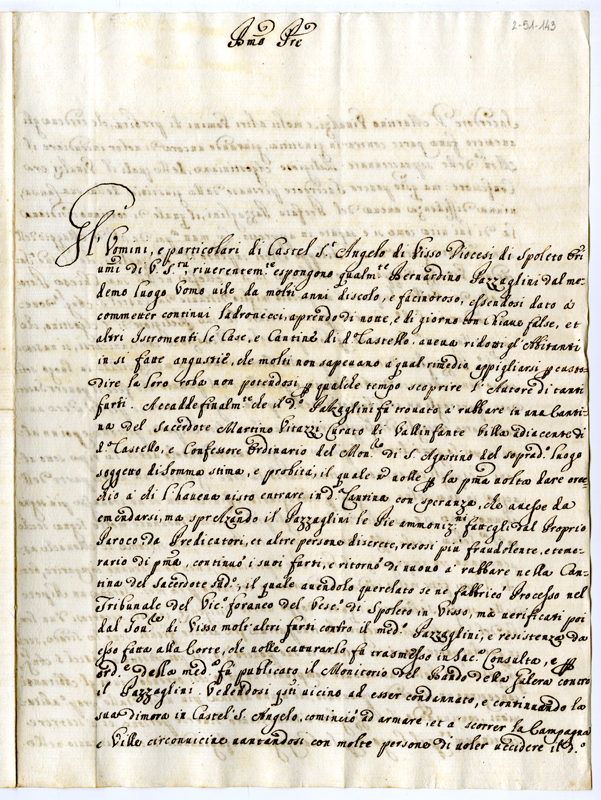 2-51-143
B.mo P.re
Gl' Uomini, e particolari di Castel S.t Angelo di Visso Diocesi di Spoleto
umi di V. S.tà, riverentem.te espongono qualm.te Bernardino Pazzaglini dal me-
demo luogo Uomo vile da molti anni discolo, e facinoroso, essendosi dato à
commeter continui ladronecci, aprendo di notte, e di giorno con chiave false, et
altri Istromenti le Case, e Cantine di d.o Castello, aveva ridotti gl'Abitanti
in si fatte angustie, che molti non sapevano a qual rimedio appigliarsi p custo-
dire la loro robba non potendosi p qualche tempo scoprire l'Autore di tanti
furti. Accadde finalm.te che il d.o Pazzaglini fù trovato à rubbare in una Canti-
na del Sacerdote Martino Vitazzi Curato di Vallinfante Villa adiacente di
d.o Castello, e Confessore Ordinario del Mon.ro di S. Agostino del soprad.o luogo
soggetto di somma stima, e probità, il quale n volle p la p.ma volta dare orec-
chio à chi l'haveva visto entrare in d.a Cantina con speranza, che avesse da
emendarsi, ma sprezzando il Pazzaglini le Pie ammoniz.ni fattegli dal Proprio
Paroco da Predicatori, et altre persone discrete, resosi più fraudolente, e teme-
rario di p.ma, continuò i suoi furti, e ritornò di nuovo à rubbare nella Can-
tina del Sacerdote sud.o, il quale avendolo querelato se ne fabbricò Processo nel
Tribunale del Vic.o foraneo del Vesc.o di Spoleto in Visso, mà verificati poi
dal Gov.re di Visso molt'altri furti contro il med.o Pazzaglini, e resistenza da
esso fatta alla Corte, che volle catturarlo fù trasmesso in Sac.a Consulta, e p
ord.e della med.a fù publicato il Monitorio del Bando della Galera contro
il Pazzaglini. Vedendosi q.sti vicino ad esser condannato, e continuando la
sua dimora in Castel S. Angelo, cominciò ad armare, et à scorrer la Campagna
e Ville circonvicine vantandosi con molte persone di voler uccidere il d.o